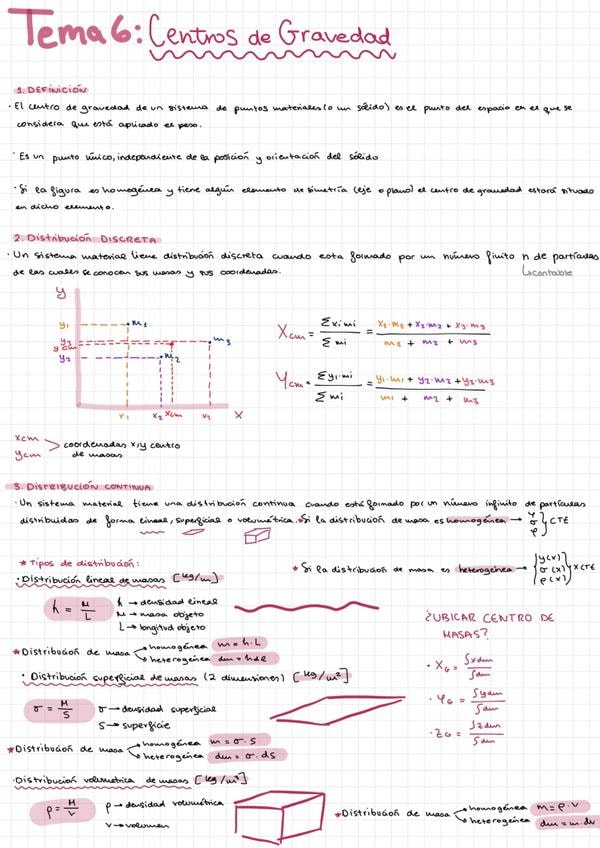 Tema 6: Centros de Gravedad
1. DEFINICIÓN
· El centro de gravedad de un sistema de puntos materiales (o un sólido) es el punto del espacio en el que se
considera que está aplicado el peso.
· Es un punto único, independiente de la posición y orientación del sólido
· Si la figura es homogénea y tiene algún elemento de simetría (eje o plano) el centro de gravedad estará situado
en dicho elemento.
2. Distribución DISCRETA
· Un sistema material tiene distribución discreta cuando esta formado por un número finito n de partículas
de las cuales se conocen sus masas y sus coordenadas.
↳ contable
y
y1
y3
ycm
y2
m1
m3
m2
x1 x2 xcm x3 X
Xcm = Σxi mi / Σmi = (x1·m1 + x2·m2 + x3·m3) / (m1 + m2 + m3)
Ycm = Σyi·mi / Σmi = (y1·m1 + y2·m2 + y3·m3) / (m1 + m2 + m3)
xcm
ycm
> coordenadas x,y centro
de masas
3. DISTRIBUCIÓN CONTINUA
· Un sistema material tiene una distribución continua cuando está formado por un número infinito de partículas
distribuidas de forma lineal, superficial o volumétrica. * Si la distribución de masa es homogénea → γ σ ρ } CTE
* Tipos de distribución:
* Si la distribución de masa es heterogénea → { γ(x) σ(x) ρ(x) } ≠ CTE
· Distribución lineal de masas [kg/m]
λ = M/L
λ → densidad lineal
M → masa objeto
L → longitud objeto
* Distribución de masa
homogénea m = λ·L
heterogénea dm = λdl
¿UBICAR CENTRO DE
MASAS?
· XG = ∫xdm / ∫dm
· YG = ∫ydm / ∫dm
· ZG = ∫zdm / ∫dm
· Distribución superficial de masas (2 dimensiones) [kg/m²]
σ = M/S
σ → densidad superficial
S → superficie
* Distribución de masa
homogénea m = σ·S
heterogénea dm = σ·dS
· Distribución volumetrica de masas [kg/m³]
ρ = M/V
ρ → densidad volumétrica
V → volumen
* Distribución de masa
homogénea m = ρ·V
heterogénea dm = m·dv